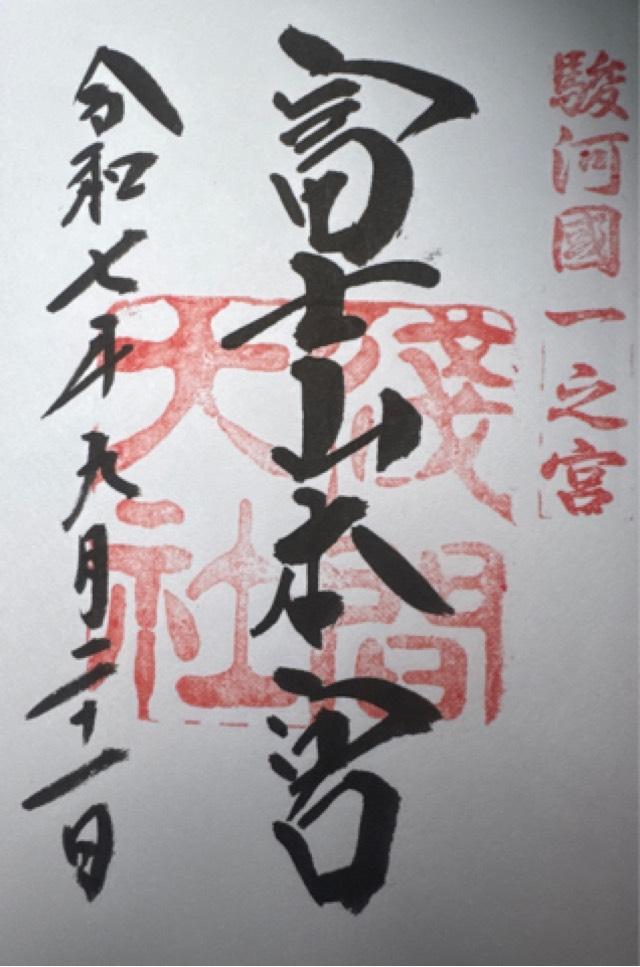 駿河國一之宮
富士山本宮
淺間
大社
令和七年九月二十一日